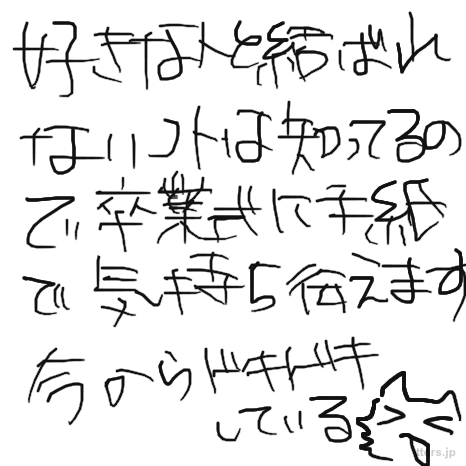 好きな人と結ばれ
ないコトは知ってるの
で卒業式に手紙
で気持ち伝えます
今からドキドキ
している
tters.jp